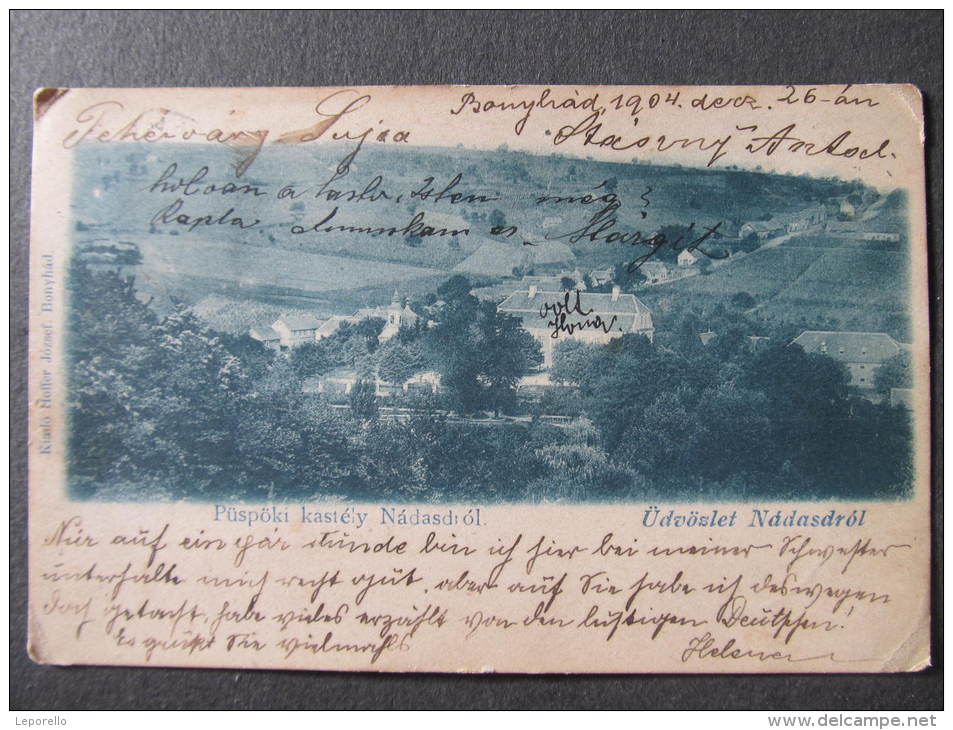 Bonyhád, 1904. decz. 26-án
Fehérváry Lujza
Antal
holván a Isten még?
Kapta és Margit
volt
Ilona
Kiadó Hoffer József. Bonyhád.
Püspöki kastély Nádasdról.
Üdvözlet Nádasdról
Nur auf ein pár stunde bin ich hier bei meiner Schwester
unterhalte mich recht gut, aber auf Sie habe ich deswegen
doch gedacht, habe vieles erzählt von den lustigen Deutschen!
Es grüßt Sie vielmahls
Leporello
www.delcampe.net